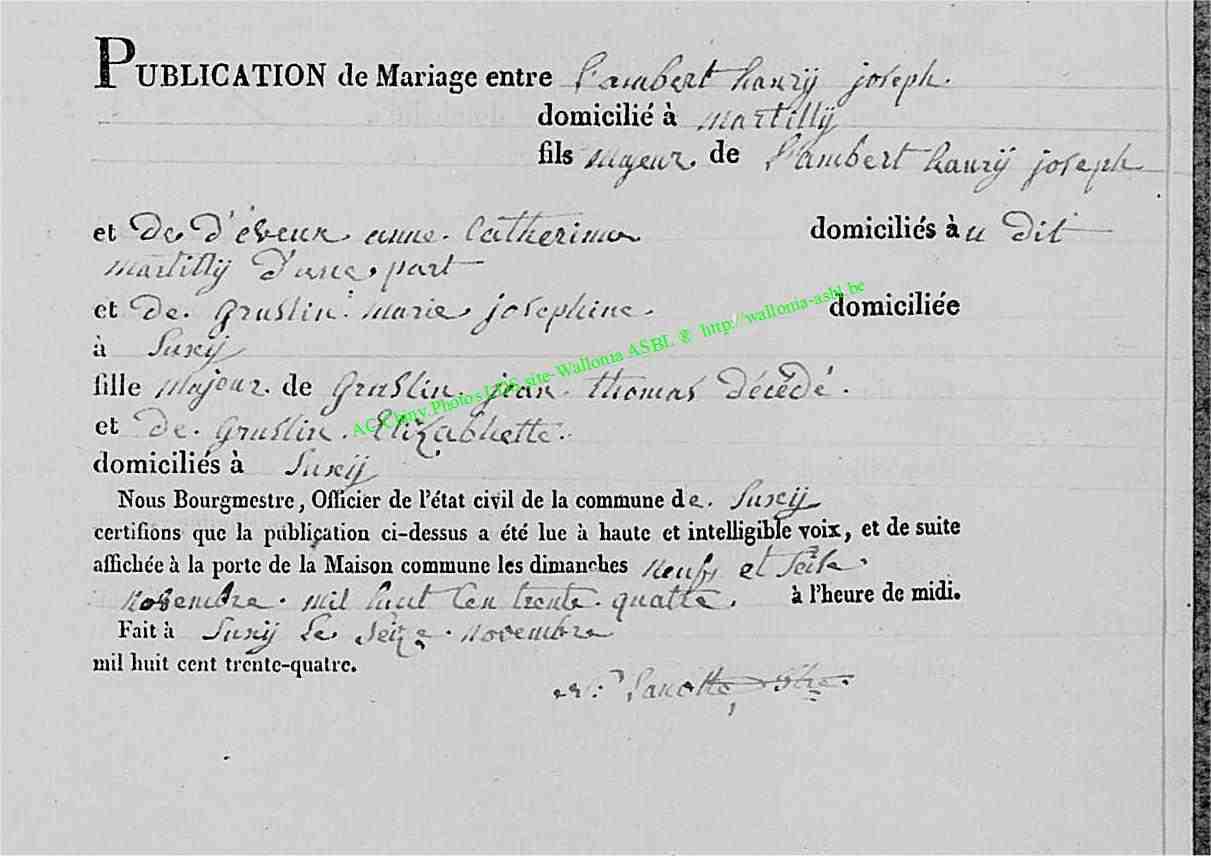 PUBLICATION de Mariage entre Lambert hanrÿ joseph.
domicilié à Martillÿ
fils Majeur de Lambert hanrÿ joseph
et de D'éveux anne Catherinne domiciliés àu dit
Martillÿ D'une part
et de. Gruslin. marie josephine. domiciliée
à Suxÿ
fille Majeur. de Gruslin. jean thomas décédé.
et de. Gruslin. Elizabhette.
domiciliés à Suxÿ
AC Chiny Photo's LDS site-Wallonia ASBL @ http://wallonia-asbl.be
Nous Bourgmestre, Officier de l'état civil de la commune de. Suxÿ
certifions que la publication ci-dessus a été lue à haute et intelligible voix, et de suite
affichée à la porte de la Maison commune les dimanches Neufs et Seize
Novembre. mil huit Cen trente. quatre. à l'heure de midi.
Fait à Suxÿ Le Seize. Novembre
mil huit cent trente-quatre.